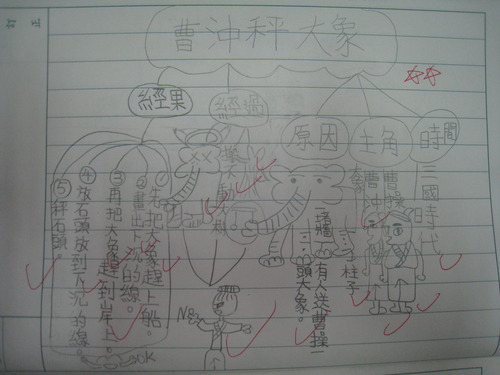 訂正
曹沖秤大象
時間
三國時代
主角
曹操
曹沖
大象
原因
一、有人送曹操一頭大象。
二、牆
三、柱子
經過
經果
①先把大象趕上船。
②畫出下沉的線。
③再把大象趕到岸上。
④放石頭放到下沉的線。
⑤秤石頭。
No
OK